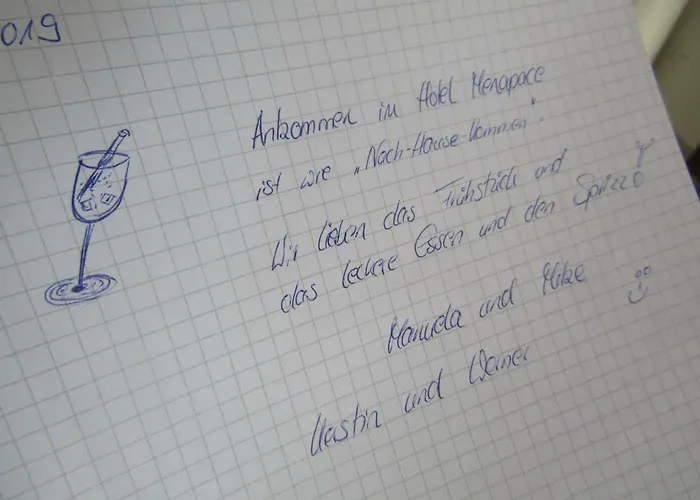 019
Ankommen im Hotel Menapace
ist wie „Nach-Hause-kommen".
Wir lieben das Frühstück und
das leckere Essen und den Sprizz
Manuela und Mike
und Werner